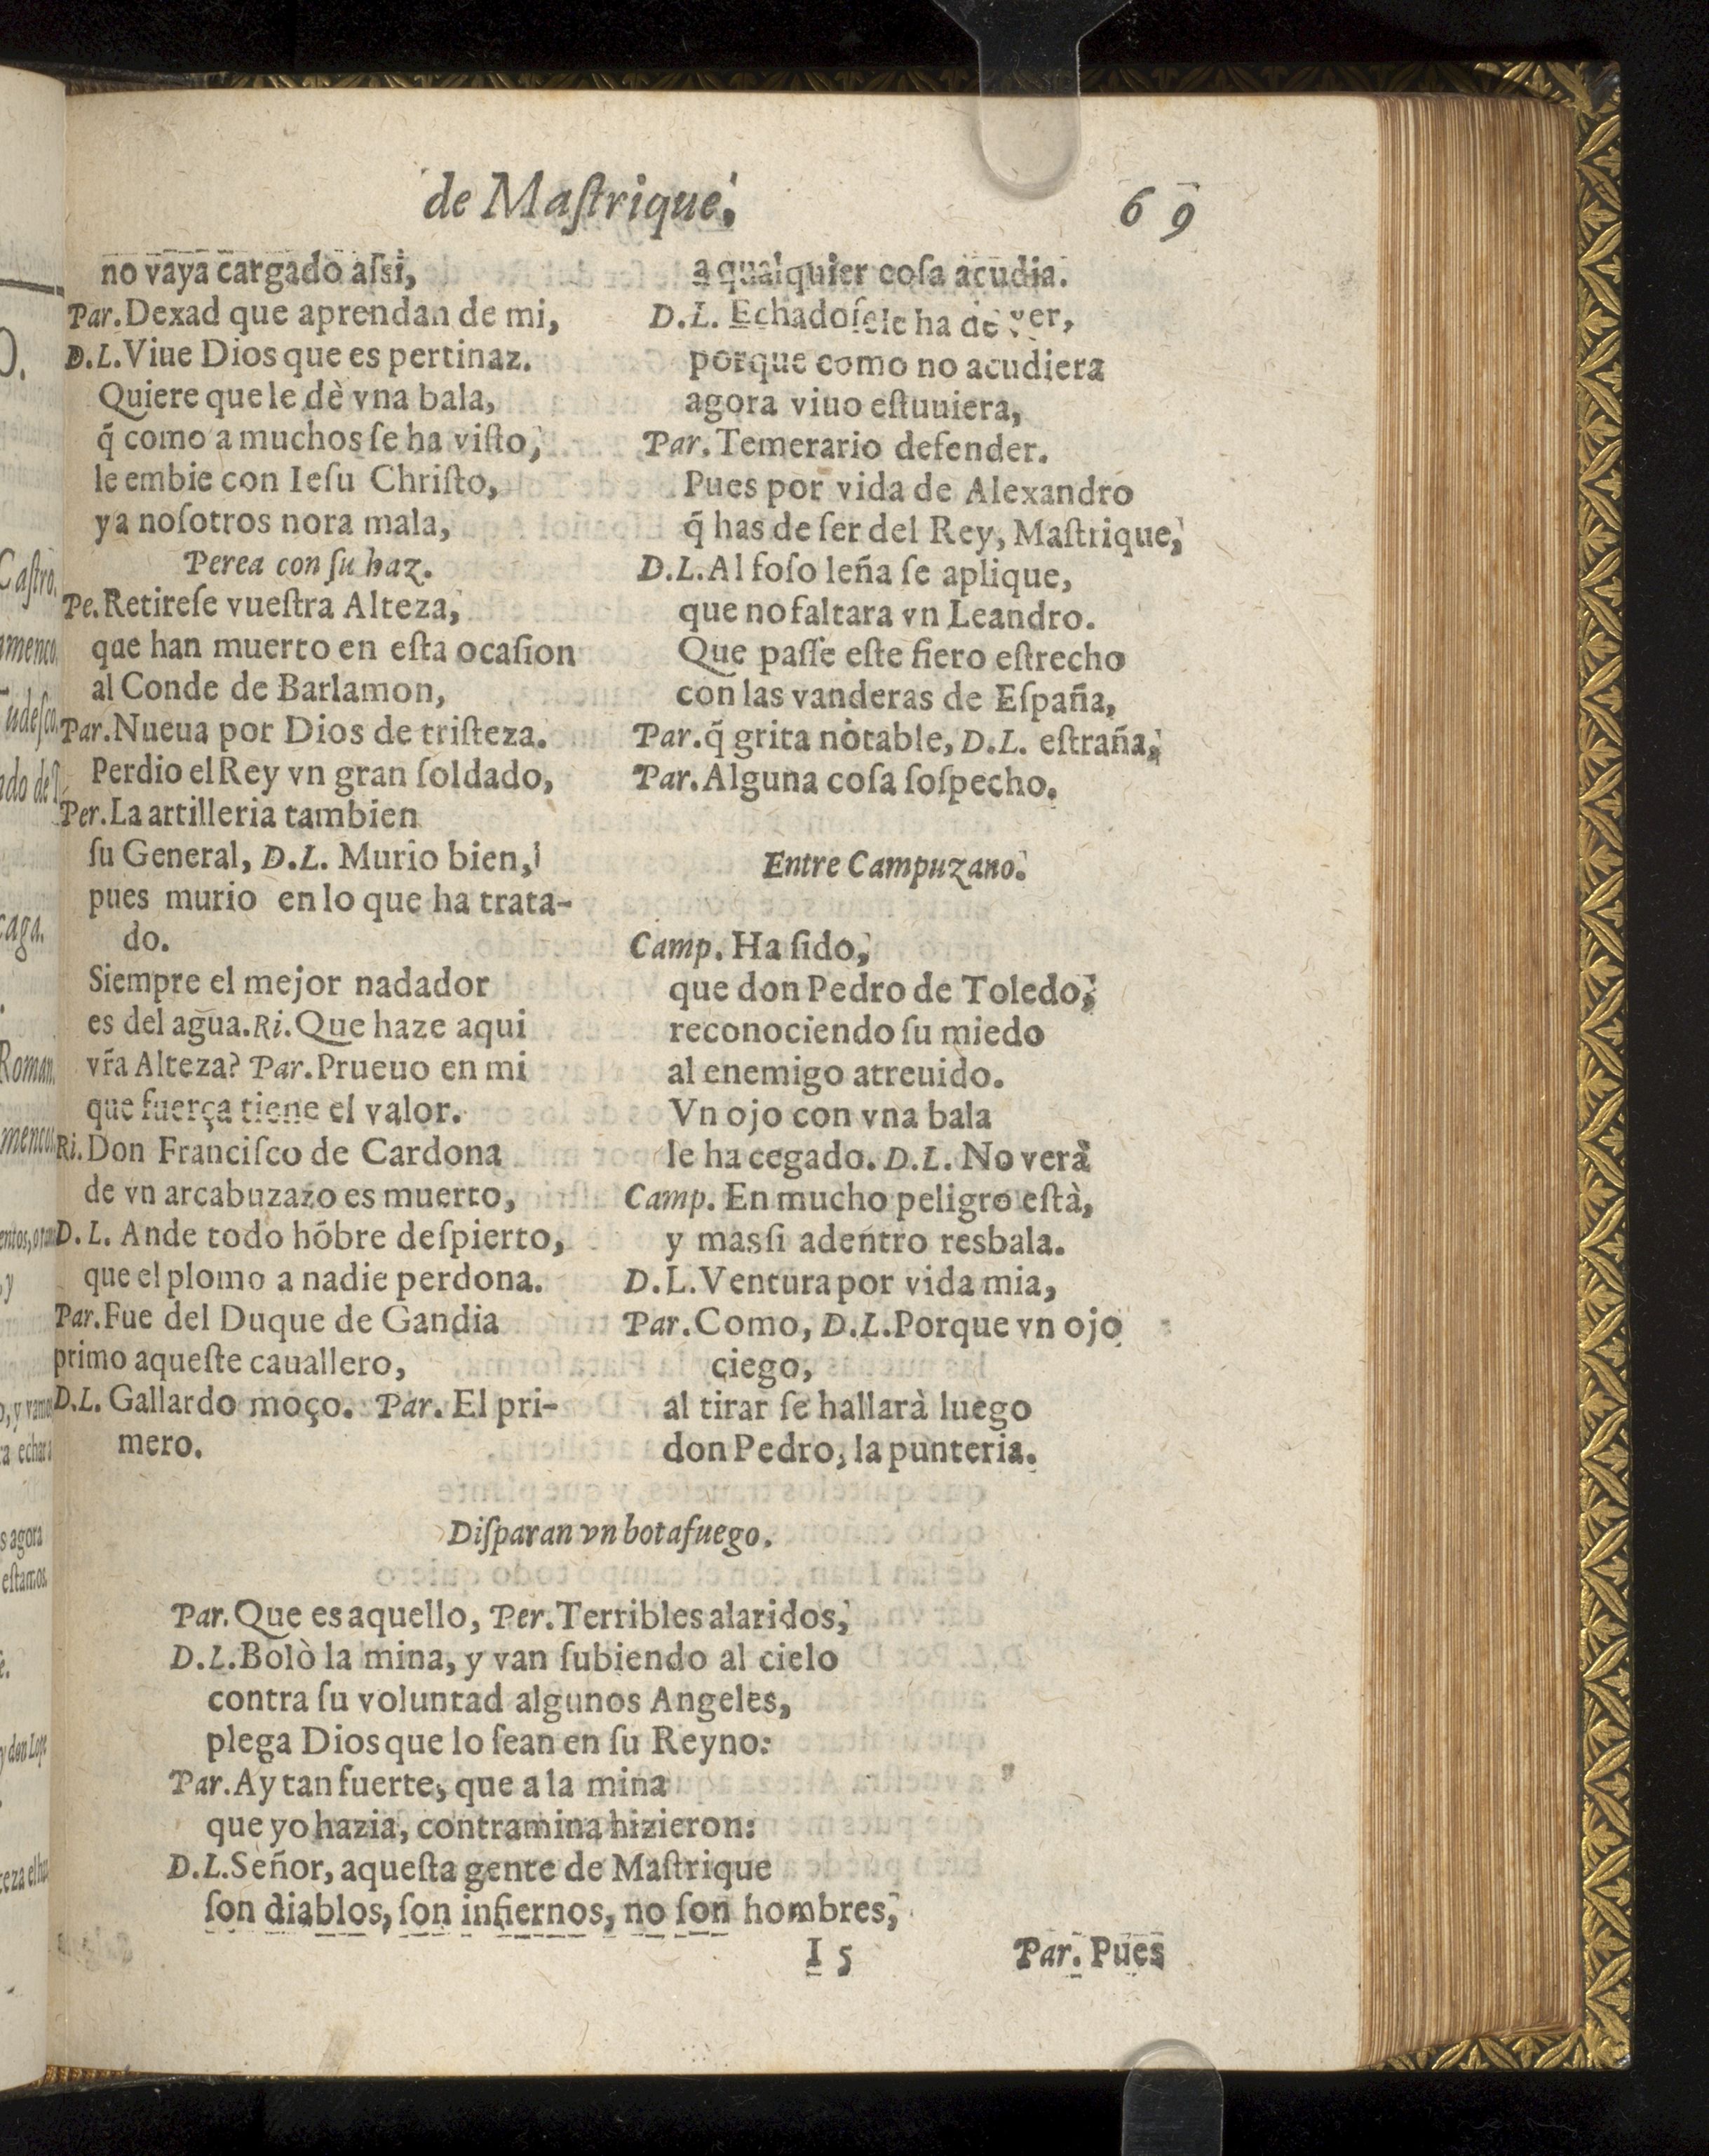 de Maſtrique.
69
no vaya cargado aſsi,
Par. Dexad que aprendan de mi,
D.L. Viue Dios que es pertinaz.
Quiere que le dè vna bala,
q̃ como a muchos ſe ha viſto,
le embie con Ieſu Chriſto,
y a noſotros nora mala,
Perea con ſu haz.
Pe. Retireſe vueſtra Alteza,
que han muerto en eſta ocaſion
al Conde de Barlamon,
Par. Nueua por Dios de triſteza.
Perdio el Rey vn gran ſoldado,
Per. La artilleria tambien
ſu General, D.L. Murio bien,
pues murio en lo que ha trata-
do.
Siempre el mejor nadador
es del agua. Ri. Que haze aqui
vr̃a Alteza? Par. Prueuo en mi
que fuerça tiene el valor.
Ri. Don Franciſco de Cardona
de vn arcabuzazo es muerto,
D.L. Ande todo hõbre deſpierto,
que el plomo a nadie perdona.
Par. Fue del Duque de Gandia
primo aqueſte cauallero,
D.L. Gallardo moço. Par. El pri-
mero.
a qualquier coſa acudia.
D.L. Echadoſele ha de ver,
porque como no acudiera
agora viuo eſtuuiera,
Par. Temerario defender.
Pues por vida de Alexandro
q̃ has de ſer del Rey, Maſtrique,
D.L. Al foſo leña ſe aplique,
que no faltara vn Leandro.
Que paſſe eſte fiero eſtrecho
con las vanderas de Eſpaña,
Par. q̃ grita notable, D.L. eſtraña,
Par. Alguna coſa ſoſpecho.
Entre Campuzano.
Camp. Ha ſido,
que don Pedro de Toledo,
reconociendo ſu miedo
al enemigo atreuido.
Vn ojo con vna bala
le ha cegado. D.L. No verà
Camp. En mucho peligro eſtà,
y masſi adentro resbala.
D.L. Ventura por vida mia,
Par. Como, D.L. Porque vn ojo
ciego,
al tirar ſe hallarà luego
don Pedro, la punteria.
Diſparan vn botafuego.
Par. Que es aquello, Per. Terribles alaridos,
D.L. Bolò la mina, y van ſubiendo al cielo
contra ſu voluntad algunos Angeles,
plega Dios que lo ſean en ſu Reyno:
Par. Ay tan fuerte, que a la mina
que yo hazia, contramina hizieron:
D.L. Señor, aqueſta gente de Maſtrique
ſon diablos, ſon infiernos, no ſon hombres,
I 5
Par. Pues